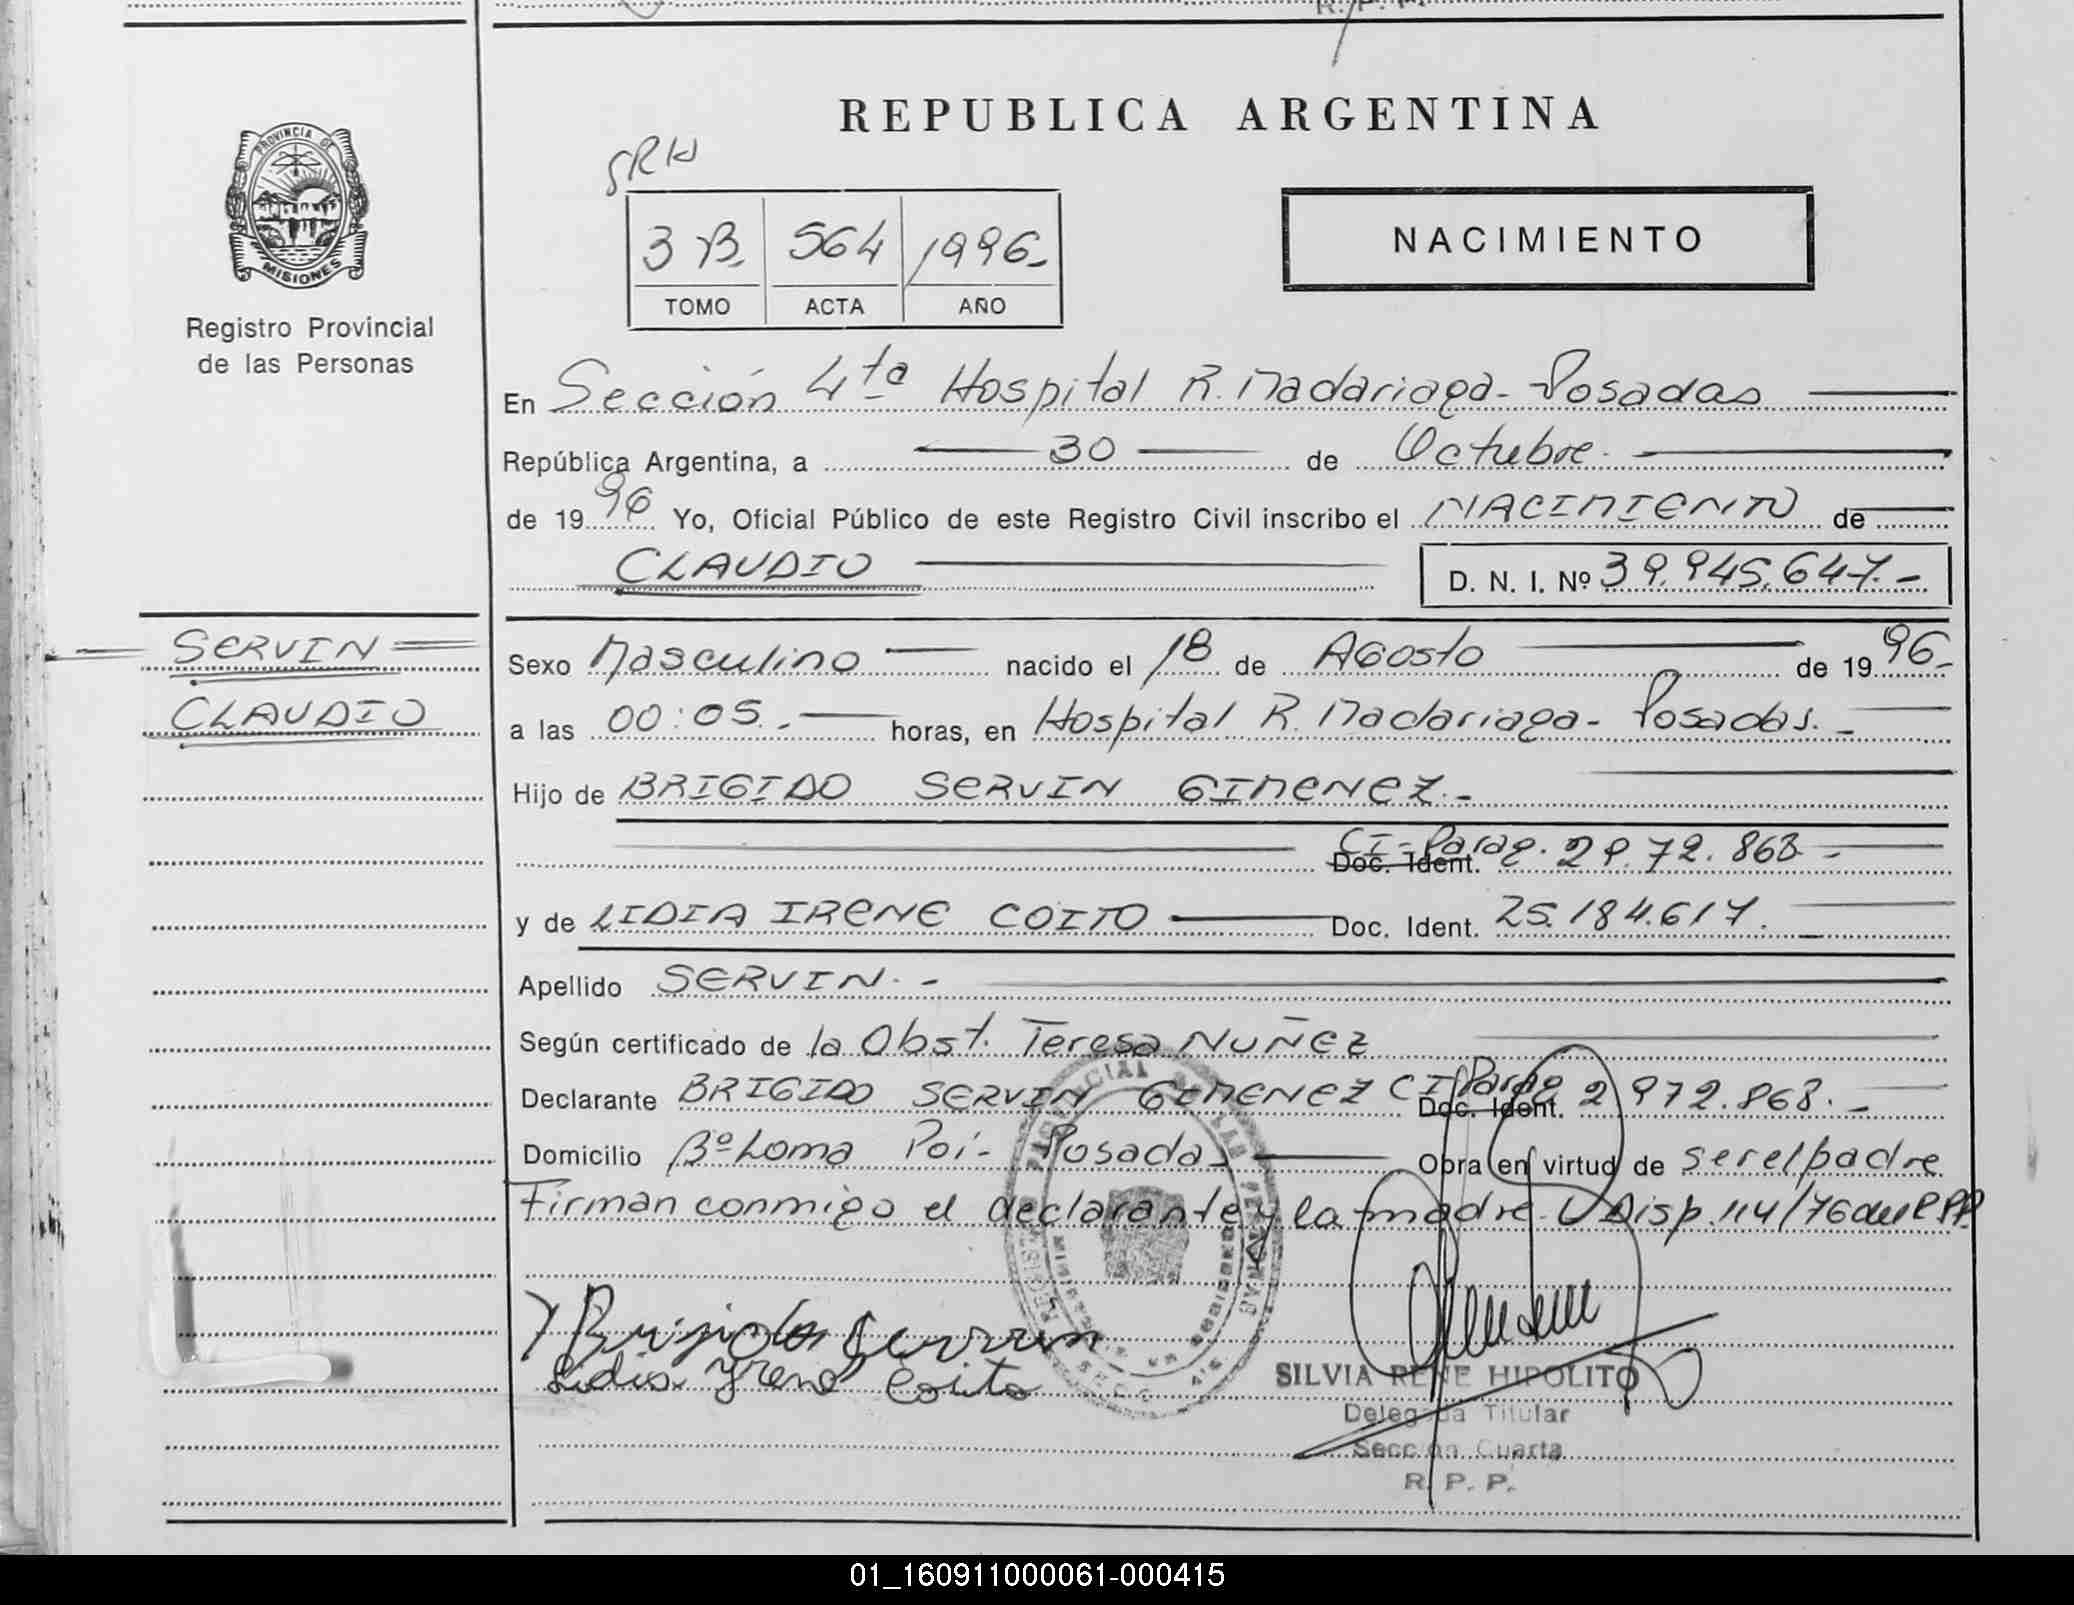 REPUBLICA ARGENTINA
PROVINCIA DE
MISIONES
Registro Provincial
de las Personas
SRH
3 B. 564 1996.-
TOMO ACTA AÑO
NACIMIENTO
En Sección 4ta Hospital R. Madariaga - Posadas
República Argentina, a 30 de Octubre.
de 19 96 Yo, Oficial Público de este Registro Civil inscribo el NACIMIENTO de
CLAUDIO D. N. I. Nº 39.945.647.-
SERVIN
CLAUDIO
Sexo Masculino nacido el 18 de Agosto de 19 96.-
a las 00:05.- horas, en Hospital R. Madariaga - Posadas.-
Hijo de BRIGIDO SERVIN GIMENEZ.-
CI-Parag. Doc. Ident. 2972.868-
y de LIDIA IRENE COITO Doc. Ident. 25.184.617.-
Apellido SERVIN.-
Según certificado de la Obst. Teresa NUÑEZ
Declarante BRIGIDO SERVIN GIMENEZ CI Parag Doc. Ident. 2972.868.-
Domicilio Bº Loma Poi - Posadas Obra en virtud de ser el padre
Firman conmigo el declarante y la madre - Disp. 114/76 del RPP.
Lidia Irene Coito
SILVIA RENE HIPOLITO
Delegada Titular
Sección Cuarta
R. P. P.
01_160911000061-000415